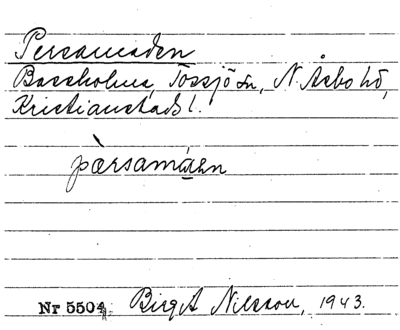 Persamaden
Bassholma, Tossjö sn, N. Åsbo hd,
Kristianstads l.
pærsamáen
Nr 5504 Birgit Nilsson, 1943.